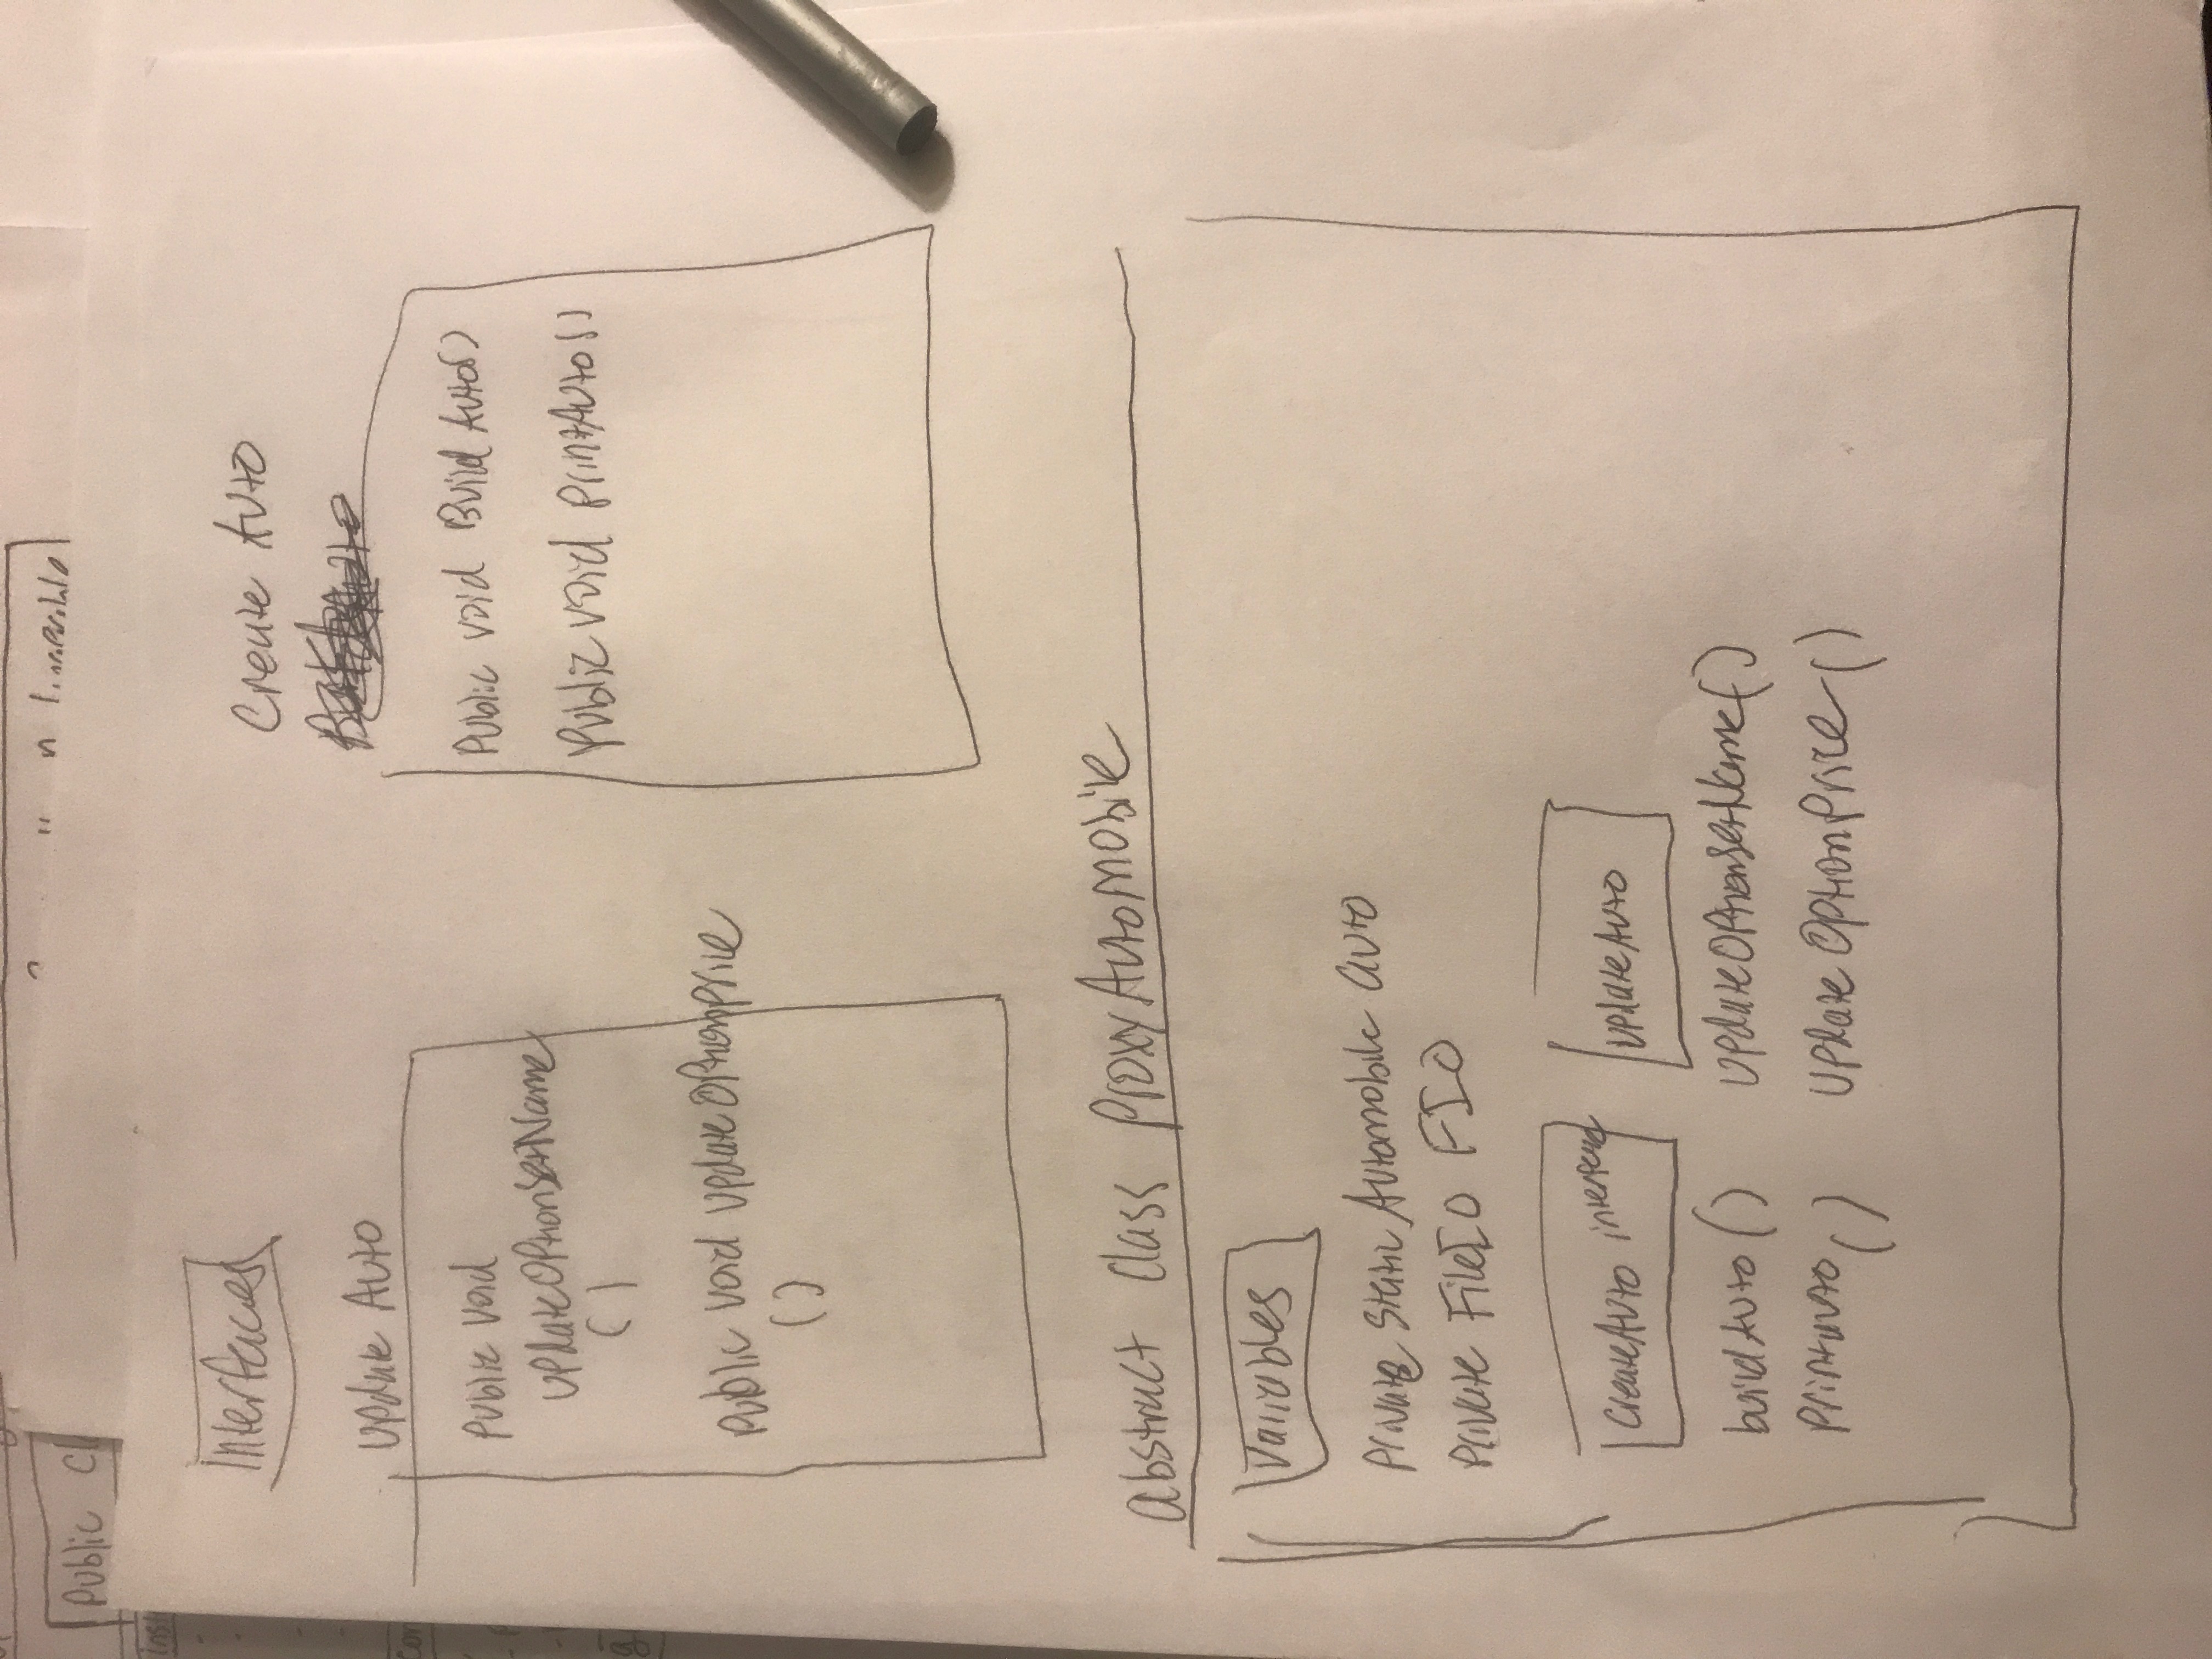 Public Cl
Interfaces
Create Auto
Update Auto
Public void
UpdateOptionSetName
()
Public void UpdateOptionPrice
()
Public void Build Auto()
Public void printAuto()
Abstract Class ProxyAutoMobile
Variables
Private Static Automobile auto
Private FileIO FIO
CreateAuto interface
UpdateAuto
buildAuto ()
UpdateOptionSetName()
Printauto ()
Update OptionPrice ()